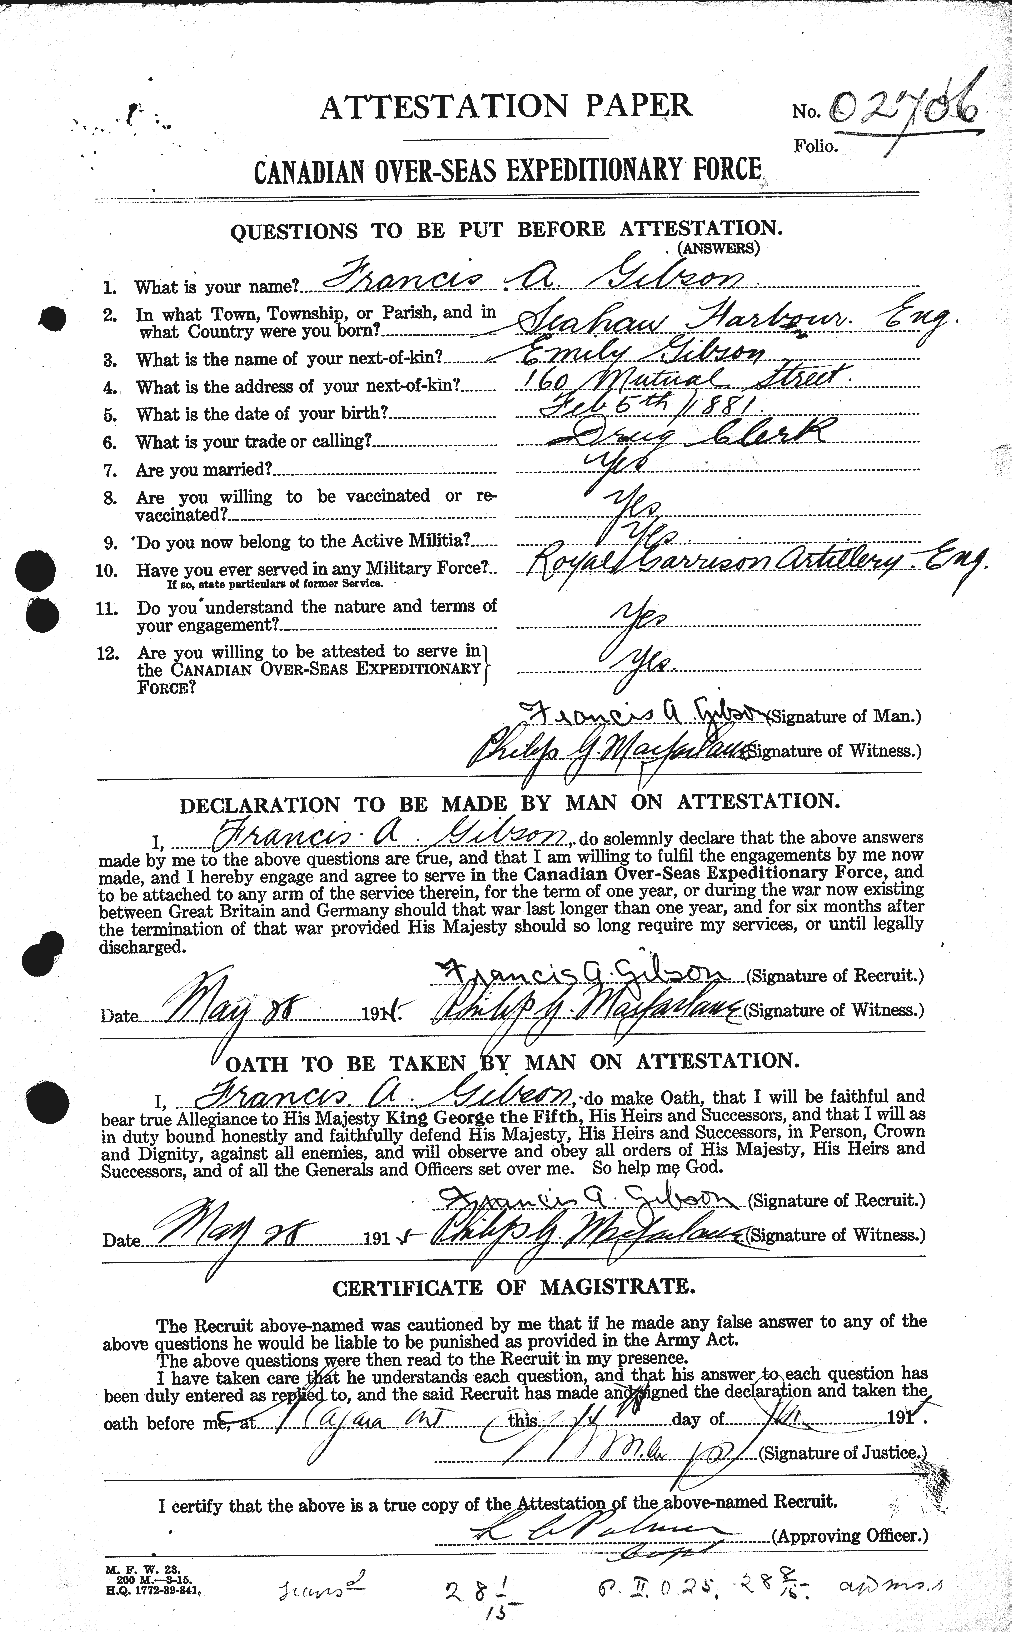 ATTESTATION PAPER
No. 02706
Folio.
CANADIAN OVER-SEAS EXPEDITIONARY FORCE
QUESTIONS TO BE PUT BEFORE ATTESTATION.
(ANSWERS)
1. What is your name? Francis A Gibson
2. In what Town, Township, or Parish, and in
what Country were you born? Seaham Harbour. Eng.
3. What is the name of your next-of-kin? Emily Gibson
4. What is the address of your next-of-kin? 160 Mutual Street.
5. What is the date of your birth? Feb 5th / 1881.
6. What is your trade or calling? Drug Clerk
7. Are you married? Yes
8. Are you willing to be vaccinated or re-
vaccinated? Yes
9. Do you now belong to the Active Militia? Yes
10. Have you ever served in any Military Force? Royal Garrison Artillery. Eng.
If so, state particulars of former Service.
11. Do you understand the nature and terms of
your engagement? Yes
12. Are you willing to be attested to serve in
the CANADIAN OVER-SEAS EXPEDITIONARY
FORCE? Yes.
Francis A Gibson (Signature of Man.)
Philip G. Macfarlane (Signature of Witness.)
DECLARATION TO BE MADE BY MAN ON ATTESTATION.
I, Francis. A. Gibson, do solemnly declare that the above answers
made by me to the above questions are true, and that I am willing to fulfil the engagements by me now
made, and I hereby engage and agree to serve in the Canadian Over-Seas Expeditionary Force, and
to be attached to any arm of the service therein, for the term of one year, or during the war now existing
between Great Britain and Germany should that war last longer than one year, and for six months after
the termination of that war provided His Majesty should so long require my services, or until legally
discharged.
Francis A. Gibson (Signature of Recruit.)
Date May 28 1915. Philip G. Macfarlane (Signature of Witness.)
OATH TO BE TAKEN BY MAN ON ATTESTATION.
I, Francis A. Gibson, do make Oath, that I will be faithful and
bear true Allegiance to His Majesty King George the Fifth, His Heirs and Successors, and that I will as
in duty bound honestly and faithfully defend His Majesty, His Heirs and Successors, in Person, Crown
and Dignity, against all enemies, and will observe and obey all orders of His Majesty, His Heirs and
Successors, and of all the Generals and Officers set over me. So help me God.
Francis A. Gibson (Signature of Recruit.)
Date May 28 1915 Philip G. Macfarlane (Signature of Witness.)
CERTIFICATE OF MAGISTRATE.
The Recruit above-named was cautioned by me that if he made any false answer to any of the
above questions he would be liable to be punished as provided in the Army Act.
The above questions were then read to the Recruit in my presence.
I have taken care that he understands each question, and that his answer to each question has
been duly entered as replied to, and the said Recruit has made and signed the declaration and taken the
oath before me, at Niagara Ont this 14 day of 1915.
(Signature of Justice.)
I certify that the above is a true copy of the Attestation of the above-named Recruit.
Palmer (Approving Officer.)
Capt
M. F. W. 23.
200 M.—3-15.
H.Q. 1772-39-841.
28 1/15 P. II. O 25. 28 8/15